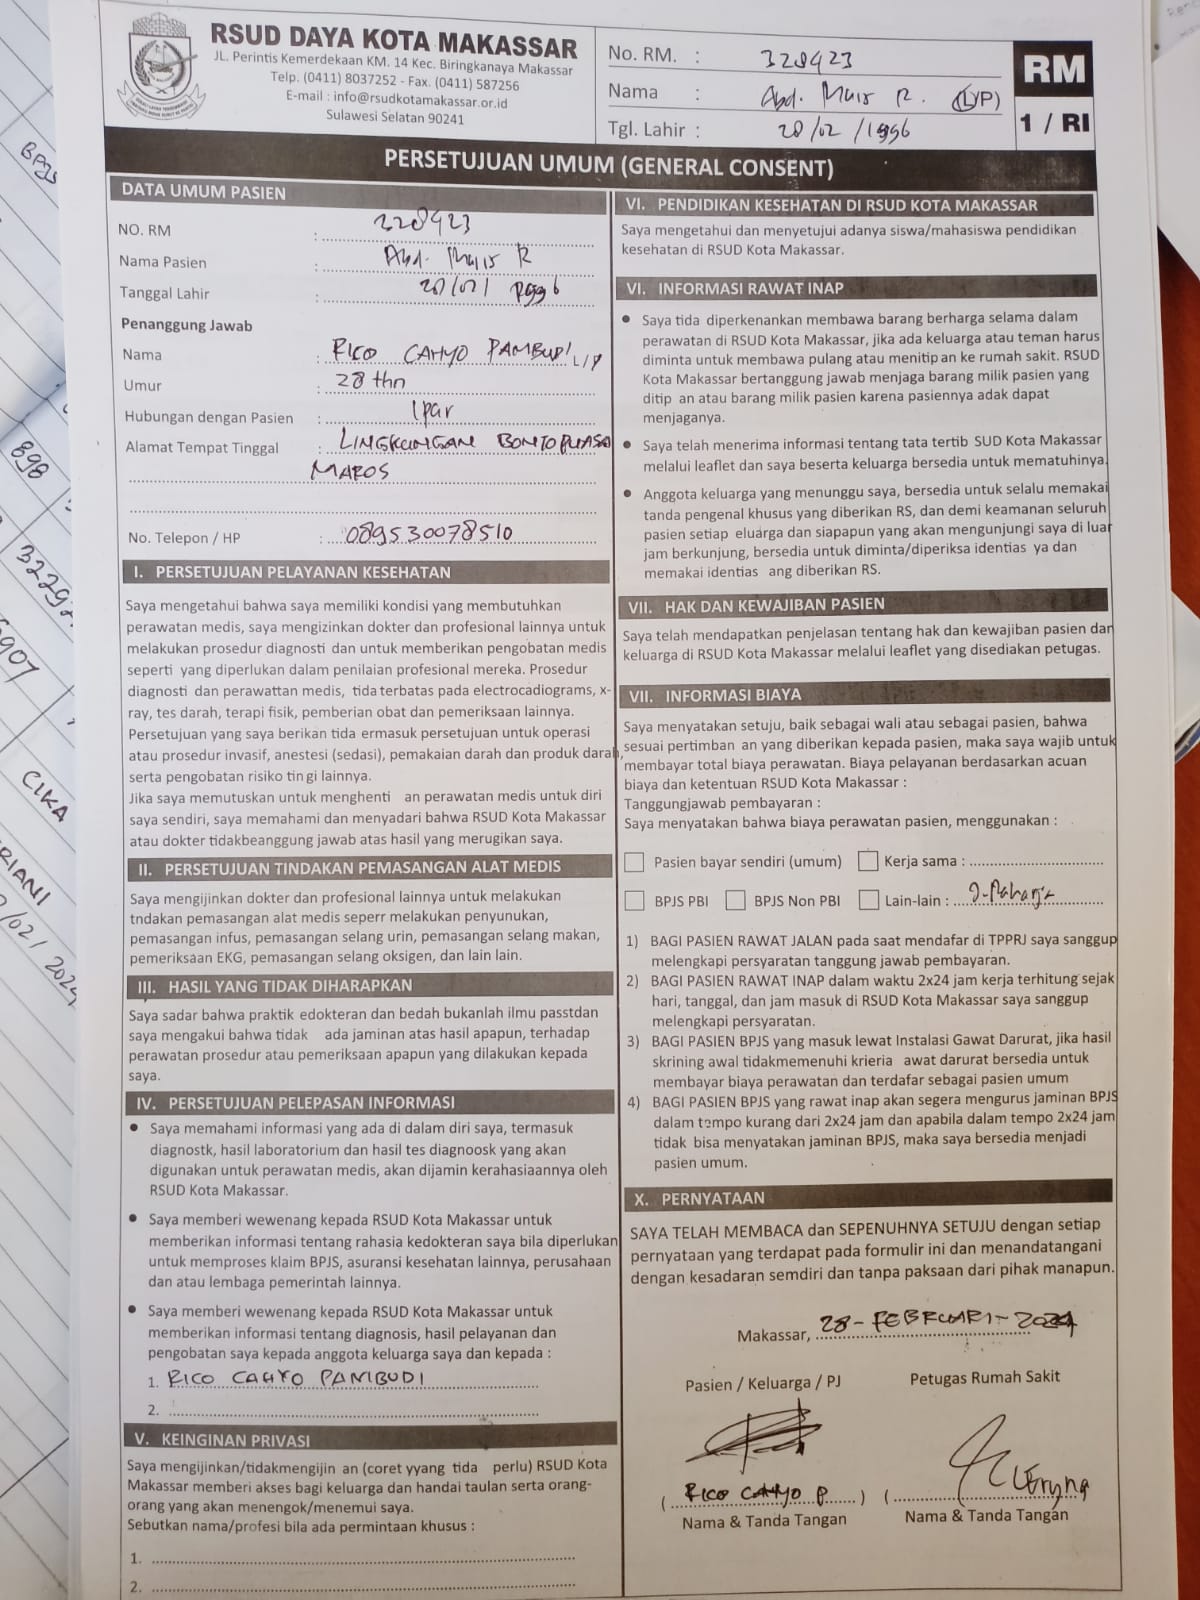 RSUD DAYA KOTA MAKASSAR
JL. Perintis Kemerdekaan KM. 14 Kec. Biringkanaya Makassar
Telp. (0411) 8037252 - Fax. (0411) 587256
E-mail : info@rsudkotamakassar.or.id
Sulawesi Selatan 90241
No. RM. : 328423
Nama : Abd. Muis R. (L/P)
Tgl. Lahir : 20/02/1996
RM
1 / RI
PERSETUJUAN UMUM (GENERAL CONSENT)
DATA UMUM PASIEN
NO. RM : 328423
Nama Pasien : Abd. Muis R
Tanggal Lahir : 20/02/ 1996
Penanggung Jawab
Nama : RICO CAHYO PAMBUDI L/P
Umur : 28 thn
Hubungan dengan Pasien : Ipar
Alamat Tempat Tinggal : LINGKUNGAN
MAROS
No. Telepon / HP : 089530078510
I. PERSETUJUAN PELAYANAN KESEHATAN
Saya mengetahui bahwa saya memiliki kondisi yang membutuhkan
perawatan medis, saya mengizinkan dokter dan profesional lainnya untuk
melakukan prosedur diagnosti dan untuk memberikan pengobatan medis
seperti yang diperlukan dalam penilaian profesional mereka. Prosedur
diagnosti dan perawattan medis, tida terbatas pada electrocadiograms, x-
ray, tes darah, terapi fisik, pemberian obat dan pemeriksaan lainnya.
Persetujuan yang saya berikan tida ermasuk persetujuan untuk operasi
atau prosedur invasif, anestesi (sedasi), pemakaian darah dan produk darah,
serta pengobatan risiko tin gi lainnya.
Jika saya memutuskan untuk menghenti an perawatan medis untuk diri
saya sendiri, saya memahami dan menyadari bahwa RSUD Kota Makassar
atau dokter tidakbeanggung jawab atas hasil yang merugikan saya.
II. PERSETUJUAN TINDAKAN PEMASANGAN ALAT MEDIS
Saya mengijinkan dokter dan profesional lainnya untuk melakukan
tndakan pemasangan alat medis seperr melakukan penyunukan,
pemasangan infus, pemasangan selang urin, pemasangan selang makan,
pemeriksaan EKG, pemasangan selang oksigen, dan lain lain.
III. HASIL YANG TIDAK DIHARAPKAN
Saya sadar bahwa praktik edokteran dan bedah bukanlah ilmu passtdan
saya mengakui bahwa tidak ada jaminan atas hasil apapun, terhadap
perawatan prosedur atau pemeriksaan apapun yang dilakukan kepada
saya.
IV. PERSETUJUAN PELEPASAN INFORMASI
● Saya memahami informasi yang ada di dalam diri saya, termasuk
diagnostk, hasil laboratorium dan hasil tes diagnoosk yang akan
digunakan untuk perawatan medis, akan dijamin kerahasiaannya oleh
RSUD Kota Makassar.
● Saya memberi wewenang kepada RSUD Kota Makassar untuk
memberikan informasi tentang rahasia kedokteran saya bila diperlukan
untuk memproses klaim BPJS, asuransi kesehatan lainnya, perusahaan
dan atau lembaga pemerintah lainnya.
● Saya memberi wewenang kepada RSUD Kota Makassar untuk
memberikan informasi tentang diagnosis, hasil pelayanan dan
pengobatan saya kepada anggota keluarga saya dan kepada :
1. RICO CAHYO PAMBUDI
2.
V. KEINGINAN PRIVASI
Saya mengijinkan/tidakmengijin an (coret yyang tida perlu) RSUD Kota
Makassar memberi akses bagi keluarga dan handai taulan serta orang-
orang yang akan menengok/menemui saya.
Sebutkan nama/profesi bila ada permintaan khusus :
1.
2.
VI. PENDIDIKAN KESEHATAN DI RSUD KOTA MAKASSAR
Saya mengetahui dan menyetujui adanya siswa/mahasiswa pendidikan
kesehatan di RSUD Kota Makassar.
VI. INFORMASI RAWAT INAP
● Saya tida diperkenankan membawa barang berharga selama dalam
perawatan di RSUD Kota Makassar, jika ada keluarga atau teman harus
diminta untuk membawa pulang atau menitip an ke rumah sakit. RSUD
Kota Makassar bertanggung jawab menjaga barang milik pasien yang
ditip an atau barang milik pasien karena pasiennya adak dapat
menjaganya.
● Saya telah menerima informasi tentang tata tertib SUD Kota Makassar
melalui leaflet dan saya beserta keluarga bersedia untuk mematuhinya.
● Anggota keluarga yang menunggu saya, bersedia untuk selalu memakai
tanda pengenal khusus yang diberikan RS, dan demi keamanan seluruh
pasien setiap eluarga dan siapapun yang akan mengunjungi saya di luar
jam berkunjung, bersedia untuk diminta/diperiksa identias ya dan
memakai identias ang diberikan RS.
VII. HAK DAN KEWAJIBAN PASIEN
Saya telah mendapatkan penjelasan tentang hak dan kewajiban pasien dan
keluarga di RSUD Kota Makassar melalui leaflet yang disediakan petugas.
VII. INFORMASI BIAYA
Saya menyatakan setuju, baik sebagai wali atau sebagai pasien, bahwa
sesuai pertimban an yang diberikan kepada pasien, maka saya wajib untuk
membayar total biaya perawatan. Biaya pelayanan berdasarkan acuan
biaya dan ketentuan RSUD Kota Makassar :
Tanggungjawab pembayaran :
Saya menyatakan bahwa biaya perawatan pasien, menggunakan :
Pasien bayar sendiri (umum) Kerja sama :
BPJS PBI BPJS Non PBI Lain-lain :
1) BAGI PASIEN RAWAT JALAN pada saat mendafar di TPPRJ saya sanggup
melengkapi persyaratan tanggung jawab pembayaran.
2) BAGI PASIEN RAWAT INAP dalam waktu 2x24 jam kerja terhitung sejak
hari, tanggal, dan jam masuk di RSUD Kota Makassar saya sanggup
melengkapi persyaratan.
3) BAGI PASIEN BPJS yang masuk lewat Instalasi Gawat Darurat, jika hasil
skrining awal tidakmemenuhi krieria awat darurat bersedia untuk
membayar biaya perawatan dan terdafar sebagai pasien umum
4) BAGI PASIEN BPJS yang rawat inap akan segera mengurus jaminan BPJS
dalam tempo kurang dari 2x24 jam dan apabila dalam tempo 2x24 jam
tidak bisa menyatakan jaminan BPJS, maka saya bersedia menjadi
pasien umum.
X. PERNYATAAN
SAYA TELAH MEMBACA dan SEPENUHNYA SETUJU dengan setiap
pernyataan yang terdapat pada formulir ini dan menandatangani
dengan kesadaran semdiri dan tanpa paksaan dari pihak manapun.
Makassar, 28 - FEBRUARI - 2024
Pasien / Keluarga / PJ Petugas Rumah Sakit
( RICO CAHYO P ) (
Nama & Tanda Tangan Nama & Tanda Tangan
BPJS
898
CIKA